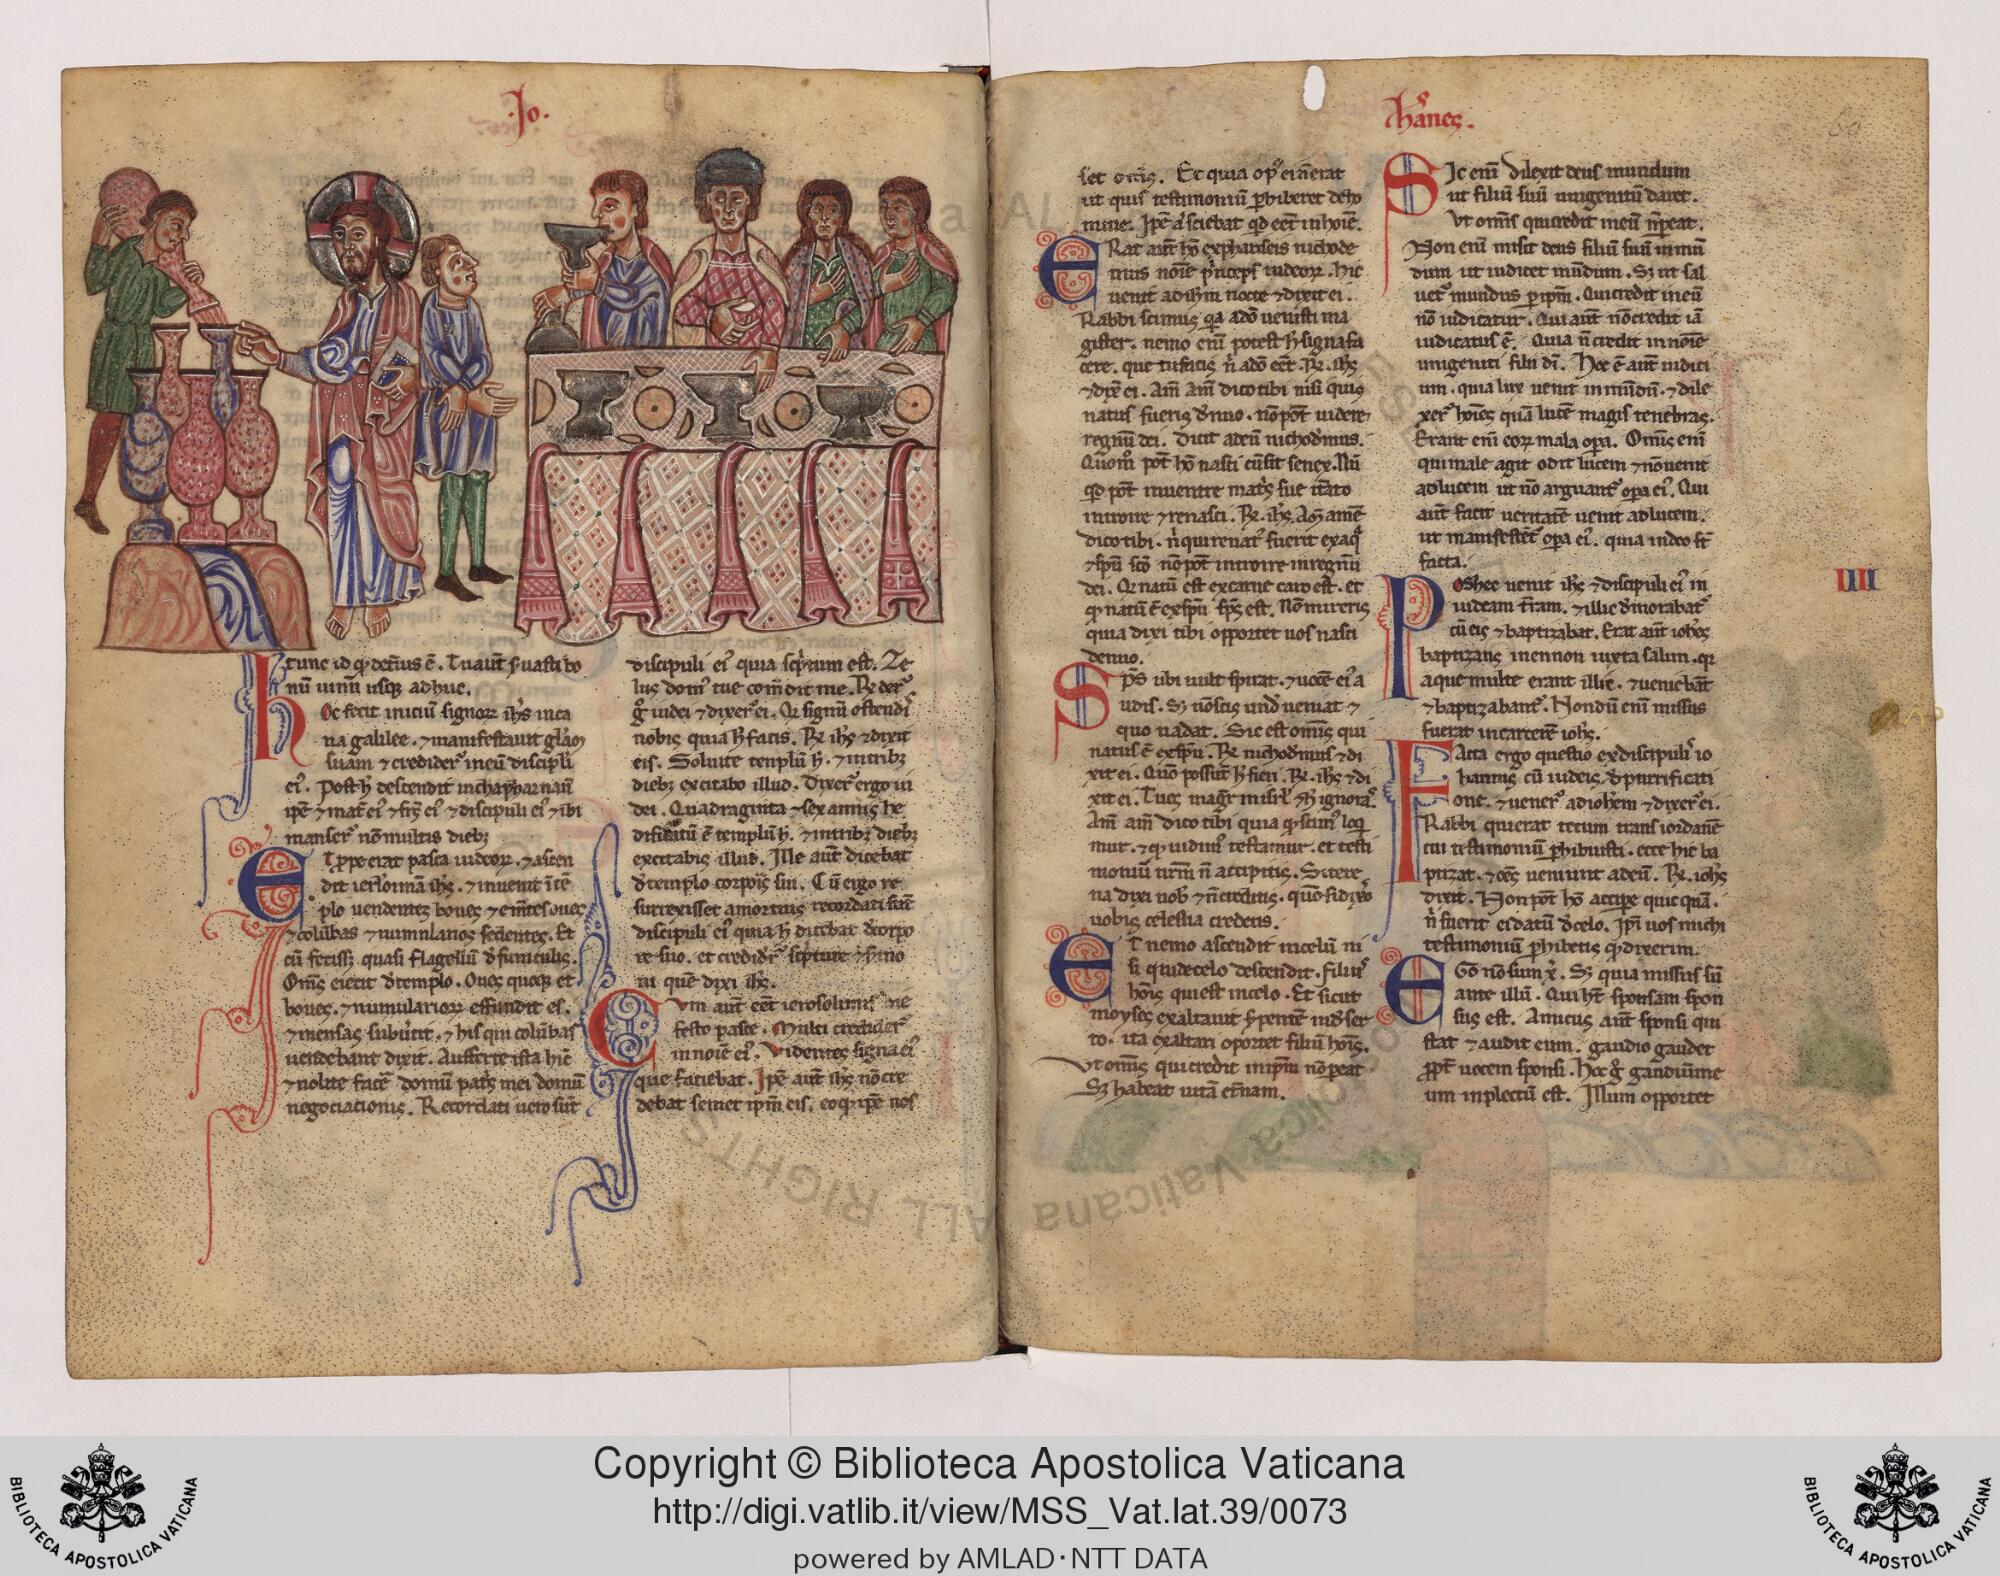 ·Jo·
tunc id q̇ deteriꝰ ē. Tu aut̄ seruasti bo
nū uinū usq; adhuc.
Hoc fecit iniciū signoꝝ ih̄s in ca
na galilee. ⁊ manifestauit gl̄am
suam ⁊ credider̄t in eū discipli
eiꝰ. Post h̄ descendit in chapharnaū
ip̄e ⁊ mat̄ eiꝰ ⁊ fr̄s eiꝰ ⁊ discipuli eiꝰ ⁊ ibi
manser̄ nō multis dieb;
Et p̄pe erat pasca iudeoꝝ. ⁊ ascen
dit ierl̓omā ih̄s. ⁊ inuenit ī tē
plo uendentes boues ⁊ oues
⁊ colūbas ⁊ numularios sedentes. Et
cū fecissꝫ quasi flagellū d̓ funiculis.
Om̄s eiecit d̓ templo. Oues quoqꝫ et
boues. ⁊ numularioꝝ effundit es.
⁊ mensas subuertit. ⁊ his qui colūbas
uendebant dixit. Aufferte ista hīc
⁊ nolite facē domū pat̓s mei domū
negociationis. Recordati uero sūt
discipuli eiꝰ quia sc̓ptum est. Ze
lus domꝰ tue comedit me. R̄ der̄
g̊ iudei ⁊ dixer̄ ei. Q̄ signū ostend̓
nobis quia h̄ facis. R̄ ih̄s ⁊ dixit
eis. Soluite templū h̄. ⁊ in trib;
dieb; excitabo illud. Dixer̄ ergo iu
dei. Quadraginta ⁊ sex annis he
dificatū ē templū h̄. ⁊ in trib; dieb;
excitabis illud. Ille aut̄ dicebat
d̓ templo corporis sui. Cū ergo re
surrexisset a mortuis recordati sūt
discipuli eiꝰ quia h̄ dicebat d̓ corpo
re suo. et credider̄ sc̓pture ⁊ s̓mo
ni quē dixi ih̄s.
Cum aut̄ eēt ierosolimis ne
festo pasce. Multi crediderꝰ
in noīe eiꝰ. Videntes signa eiꝰ
que faciebat. Ip̄e aut̄ ih̄s nō cre
debat semet ip̄m eis. eo q̇ ip̄e nos
hānes.
set om̄s. Et quia opꝰ ei n̄ erat
ut quis testimoniū ꝑhiberet de ho
mine. Ip̄e .n. sciebat qd̓ eēt in hoīe.
Erat aut̄ hō ex phariseis nichode
mus noīe p̓nceps iudeoꝝ. hic
uenit ad ih̄m nocte ⁊ dixit ei.
Rabbi scimus qa a dō uenisti ma
gister. nemo enī potest h̄ signa fa
cere. que tu facis n̓ a dō eēt. R̄ ih̄s
⁊ dix̄ ei. Am̄ am̄ dico tibi nisi quis
natus fueris d̓nuo. nō pōt uidere
regnū dei. Dicit ad eū nichod̓mus.
Quōm̊ pōt hō nasci cū sit senex. Nū
qd̓ pōt in uentre mat̓s sue it̄ato
introire ⁊ renasci. R̄ ih̄s. Am̄ amē
dico tibi. n̓ qui renatꝰ fuerit ex aqua
⁊ sp̄u scō nō pōt introire in regnū
dei. Q̇ natū est ex carne caro est. et
q̇ natū ē ex sp̄u sp̄s est. Nō mireris
quia dixi tibi opportet uos nasci
denuo.
Sp̄s ubi uult spirat. ⁊ uocē eiꝰ a
udis. Sꝫ nō scis und̓ ueniat ⁊
quo uadat. Sic est omīs qui
natus ē ex sp̄u. R̄ nichod̓mus ⁊ di
xit ei. Quō possūt h̄ fieri. R̄ ih̄s ⁊ di
xit ei. Tu es mag̓r in isrl̓ ⁊ h̄ ignoras.
Am̄ am̄ dico tibi quia q̇ scimꝰ loq̓
mur. ⁊ q̇ uidimꝰ testamur. et testi
moniū nr̄m n̄ accipitis. Si terre
na dixi uob̓ ⁊ n̄ creditis. quō si dix̓o
uobis celestia credens.
Et nemo ascendit in celū ni
si qui de celo descendit. filiuꝰ
hōīs qui est in celo. Et sicut
moyses exaltauit s̓pentē in d̓ser
to. ita exaltari oportet filiū hoīs.
Vt omīs qui credit in ip̄m nō ꝑeat
Sꝫ habeat uitā et̓nam.
Sic enī dilexit deus mundum
ut filiū suū unigenitū daret.
Vt om̄s qui credit in eū n̄ ꝑeat.
Non enī misit deus filiū suū in mū
dum ut iudicet mūdum. Sꝫ ut sal
uet̄ mundus ꝑ ip̄m. Qui credit in eū
nō iudicatur. Qui aut̄ nō credit iā
iudicatus ē. Quia n̄ credit in noīe
unigeniti filii dī. Hec ē aut̄ iudici
um. quia lux uenit in mūdū. ⁊ dile
xer̄ hoīes quā lucē magis tenebras.
Erant enī eoꝝ mala opa. Om̄is enī
qui male agit odit lucem ⁊ nō uenit
ad lucem ut nō arguant̄ opa eiꝰ. Qui
aut̄ facit ueritatē uenit ad lucem.
ut manifestet̄ opa eiꝰ. quia in deo st̄
facta.
Post hec uenit ih̄s ⁊ discipuli eiꝰ in
iudeam t̄ram. ⁊ illic d̓morabat̄
cū eis ⁊ baptizabat. Erat aut̄ ioh̄es
baptizans in ennon iuxta salim. q̓
aque multe erant illic. ⁊ ueniebāt
⁊ baptizabant̄. Nondū enī missus
fuerat in carcerē ioh̄s.
Facta ergo questio ex discipulis io
hannis cū iudeis. d̓ purificati
one. ⁊ uener̄ ad ioh̄em ⁊ dixer̄ ei.
Rabbi qui erat tecum trans iordanē
cui testimoniū ꝑhibuisti. ecce hic ba
ptizat. ⁊ oēs ueniunt ad eū. R̄ ioh̄s
dixit. Non pōt hō accipe quicquā.
n̓ fuerit ei datū d̓ celo. Ip̄i uos michi
testimonium ꝑhibetis q̇ dixerim.
Ego nō sum x̄. Sꝫ quia missus sū
ante illū. Qui ht̄ sponsam spon
sus est. Amicus aut̄ sponsi qui
stat ⁊ audit eum. gaudio gaudet
ꝓpt̄ uocem sponsi. Hoc g̊ gaudiū me
um inplectū est. Illum opportet
IIII
Copyright © Biblioteca Apostolica Vaticana
http://digi.vatlib.it/view/MSS_Vat.lat.39/0073
powered by AMLAD·NTT DATA
BIBLIOTECA APOSTOLICA VATICANA
BIBLIOTECA APOSTOLICA VATICANA